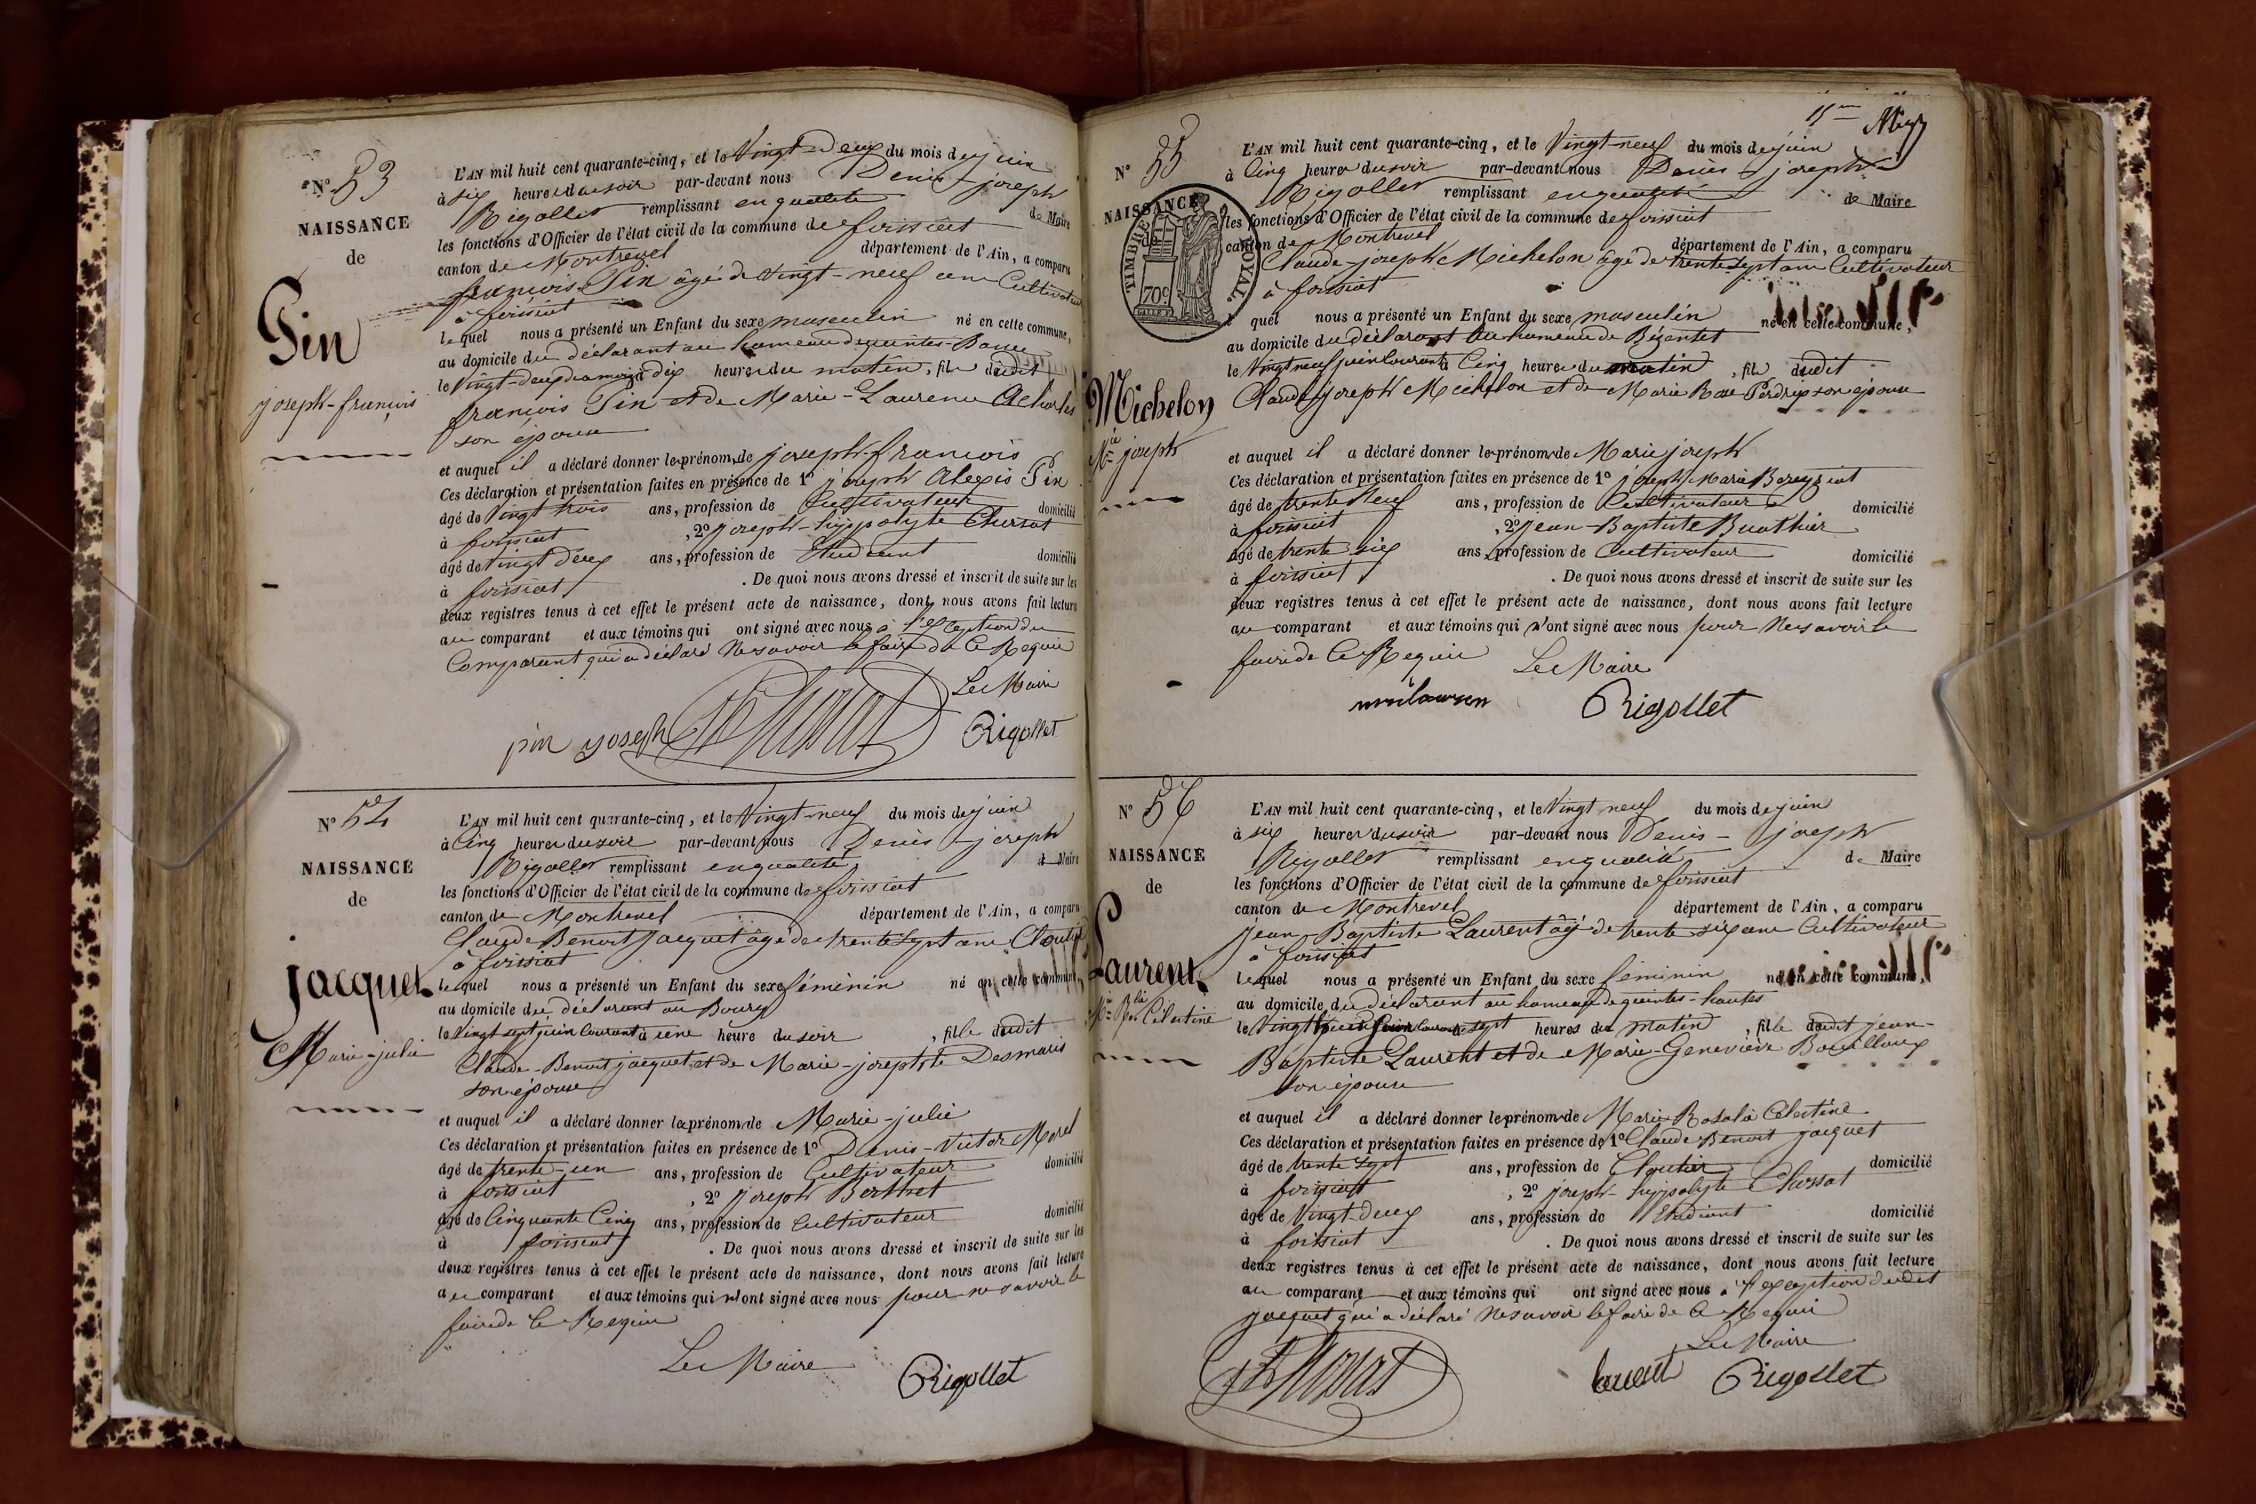 N° 53
NAISSANCE
de
Pin
joseph-françois
L'AN mil huit cent quarante-cinq, et le Vingt-Deux du mois de juin
à six heures du soir par-devant nous Denis-joseph
Rigollet remplissant en qualité de Maire
les fonctions d'Officier de l'état civil de la commune de foissiat
canton de Montrevel département de l'Ain, a comparu
françois Pin âgé de vingt-neuf ans Cultivateur
à foissiat
lequel nous a présenté un Enfant du sexe masculin né en cette commune,
au domicile du déclarant au hameau de
le Vingt-deux à dix heures du matin, fils dudit
françois Pin et de Marie-Laurence
son épouse
et auquel il a déclaré donner les prénoms de joseph-françois
Ces déclaration et présentation faites en présence de 1° joseph Alexis Pin
âgé de Vingt trois ans, profession de Cultivateur domicilié
à foissiat , 2° joseph-hyppolyte Chossat
âgé de Vingt deux ans, profession de Etudiant domicilié
à foissiat . De quoi nous avons dressé et inscrit de suite sur les
deux registres tenus à cet effet le présent acte de naissance, dont nous avons fait lecture
au comparant et aux témoins qui ont signé avec nous à l'exception du
Comparant qui a déclaré Ne savoir le faire de Ce Requis
Le Maire
pin joseph Chossat Rigollet
N° 54
NAISSANCE
de
jacquet
Marie-julie
L'AN mil huit cent quarante-cinq, et le Vingt-neuf du mois de juin
à Cinq heures du soir par-devant nous Denis-joseph
Rigollet remplissant en qualité de Maire
les fonctions d'Officier de l'état civil de la commune de foissiat
canton de Montrevel département de l'Ain, a comparu
Claude Benoit jacquet âgé de trente sept ans Cloutier
à foissiat
lequel nous a présenté un Enfant du sexe féminin né en cette commune,
au domicile du déclarant au Bourg
le Vingt sept juin Courant à une heure du soir , fille dudit
Claude-Benoit jacquet et de Marie-josephte Desmaris
son épouse
et auquel il a déclaré donner les prénoms de Marie-julie
Ces déclaration et présentation faites en présence de 1° Denis-Victor Morel
âgé de trente-un ans, profession de Cultivateur domicilié
à foissiat , 2° joseph Berthet
âgé de Cinquante Cinq ans, profession de Cultivateur domicilié
à foissiat . De quoi nous avons dressé et inscrit de suite sur les
deux registres tenus à cet effet le présent acte de naissance, dont nous avons fait lecture
au comparant et aux témoins qui n'ont signé avec nous pour ne savoir le
faire de Ce Requis
Le Maire
Rigollet
N° 55
NAISSANCE
de
TIMBRE ROYAL.
70c
Michelon
Mie joseph
L'AN mil huit cent quarante-cinq, et le Vingt-neuf du mois de juin
à Cinq heures du soir par-devant nous Denis-joseph
Rigollet remplissant en qualité de Maire
les fonctions d'Officier de l'état civil de la commune de foissiat
canton de Montrevel département de l'Ain, a comparu
Claude-joseph Michelon âgé de trente sept ans Cultivateur
à foissiat
lequel nous a présenté un Enfant du sexe masculin né en cette commune,
au domicile du déclarant au hameau de Bézentet
le Vingt neuf juin Courant à Cinq heures du matin , fils dudit
Claude joseph Michelon et de Marie Rose Perdrix son épouse
et auquel il a déclaré donner les prénoms de Marie joseph
Ces déclaration et présentation faites en présence de 1° joseph Marie Bereyziat
âgé de trente Neuf ans, profession de Cultivateur domicilié
à foissiat , 2° jean-Baptiste Buathier
âgé de trente six ans, profession de Cultivateur domicilié
à foissiat . De quoi nous avons dressé et inscrit de suite sur les
deux registres tenus à cet effet le présent acte de naissance, dont nous avons fait lecture
au comparant et aux témoins qui n'ont signé avec nous pour Ne savoir le
faire de Ce Requis Le Maire
Rigollet
N° 56
NAISSANCE
de
Laurent
Mie Rlie Célestine
L'AN mil huit cent quarante-cinq, et le Vingt neuf du mois de juin
à six heures du soir par-devant nous Denis-joseph
Rigollet remplissant en qualité de Maire
les fonctions d'Officier de l'état civil de la commune de foissiat
canton de Montrevel département de l'Ain, a comparu
jean Baptiste Laurent âgé de trente six ans Cultivateur
à foissiat
lequel nous a présenté un Enfant du sexe féminin né en cette commune,
au domicile du déclarant au hameau de quintes-hautes
le Vingt huit juin courant à sept heures du matin , fille dudit jean-
Baptiste Laurent et de Marie-Geneviève Bouilloux
son épouse
et auquel il a déclaré donner les prénoms de Marie Rosalie Célestine
Ces déclaration et présentation faites en présence de 1° Claude Benoit jacquet
âgé de trente sept ans, profession de Cloutier domicilié
à foissiat , 2° joseph-hyppolyte Chossat
âgé de Vingt-deux ans, profession de Etudiant domicilié
à foissiat . De quoi nous avons dressé et inscrit de suite sur les
deux registres tenus à cet effet le présent acte de naissance, dont nous avons fait lecture
au comparant et aux témoins qui ont signé avec nous à l'exception dudit
jacquet qui a déclaré Ne savoir le faire de Ce Requis
Le Maire
Chossat Laurent Rigollet